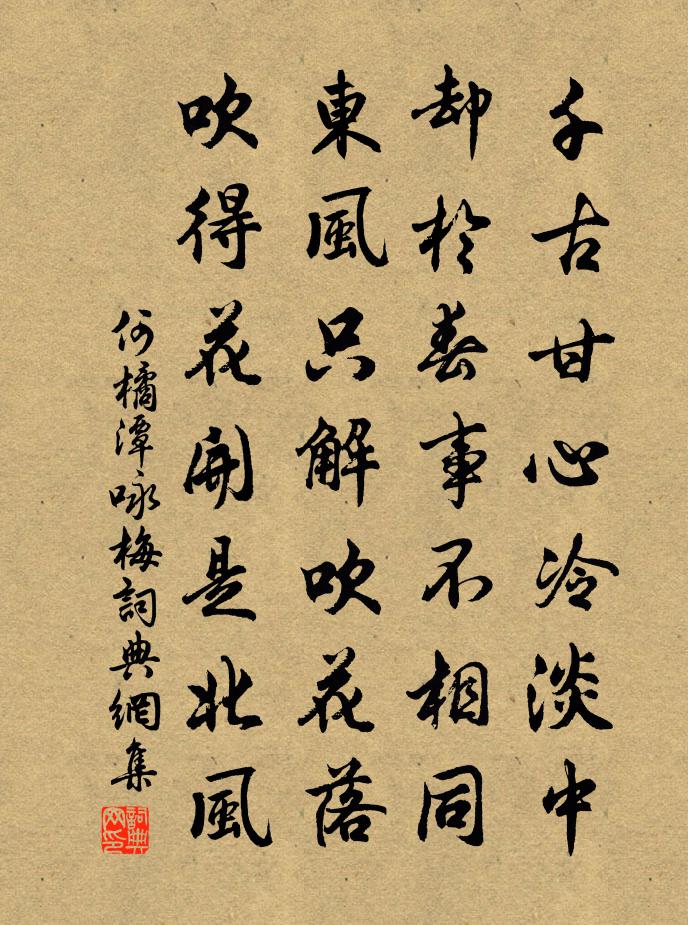 千古甘心冷淡中
却於春事不相同
東風只解吹花落
吹得花開是北風
何橘潭詠梅詞典網集
詞典网印